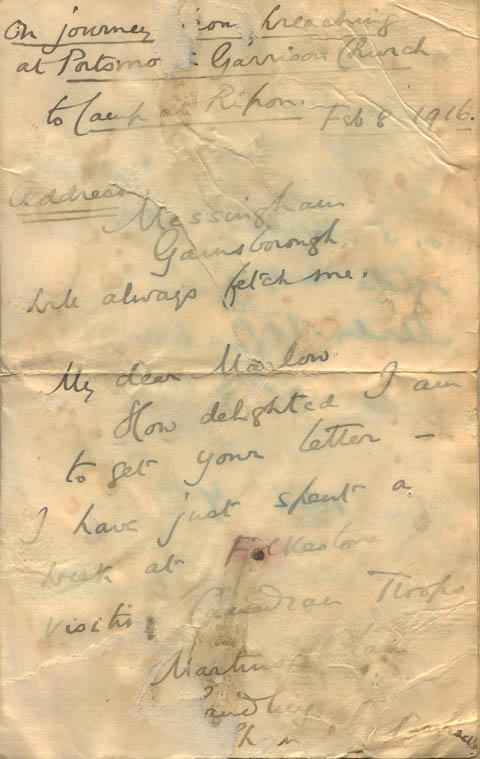 On journey from preaching
at Portsmo Garrison Church
to Camp at Ripon.
Feb 8 1916.
Address
Messingham
Gainsborough.
will always fetch me.
My dear Marlow
How delighted I am
to get your letter –
I have just spent a
week at Folkestone
visiti Canadian Troops
Martins